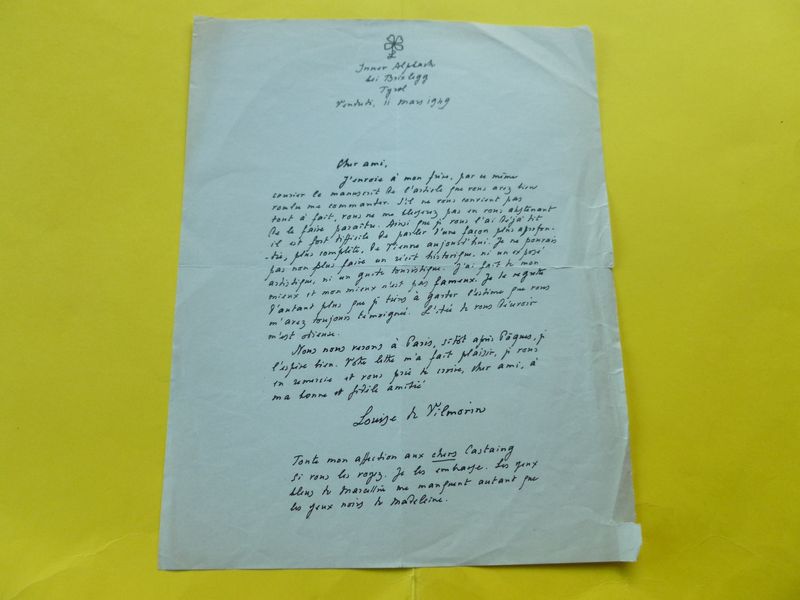 Inner Alpbach
bei Brixlegg
Tyrol
Vendredi, 11 mars 1949
Cher ami,
J'envoie à mon frère, par ce même
courier le manuscrit de l'article que vous avez bien
voulu me commander. S'il ne vous convient pas
tout à fait, vous ne me blesserez pas en vous abstenant
de le faire paraître. Ainsi que je vous l'ai déjà dit
il est fort difficile de parler d'une façon plus aprofon-
-die, plus complète, de Vienne aujourd'hui. Je ne pouvais
pas non plus faire un récit historique, ni un exposé
artistique, ni un guide touristique. J'ai fait de mon
mieux et mon mieux n'est pas fameux. Je le regrette
d'autant plus que je tiens à garder l'estime que vous
m'avez toujours témoignée. L'idée de vous décevoir
m'est odieuse.
Nous nous verrons à Paris, sitôt après Pâques, je
l'espère bien. Votre lettre m'a fait plaisir, je vous
en remercie et vous prie de croire, cher ami, à
ma bonne et fidèle amitié
Louise de Vilmorin
Toute mon affection aux chers Castaing
si vous les voyez. Je les embrasse. Les yeux
bleus de Marcellin me manquent autant que
les yeux noirs de Madeleine.